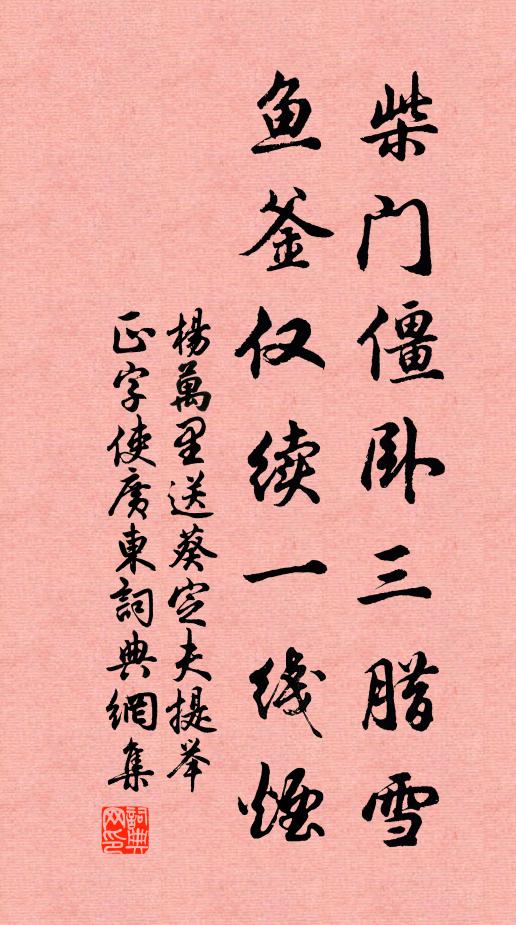 柴门僵卧三腊雪
鱼釜仅续一线烟
楊萬里送葵定夫提举
正字使廣東詞典網集
詞典网印